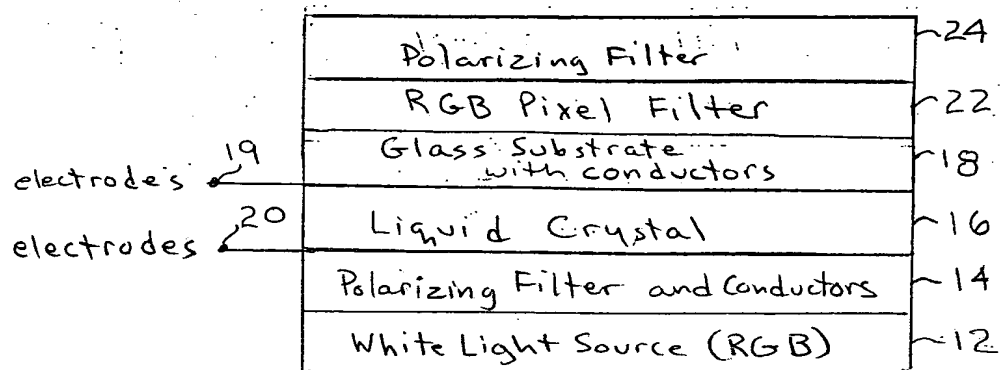 Polarizing Filter 24
RGB Pixel Filter 22
Glass Substrate
with conductors 18
electrodes 19
Liquid Crystal 16
electrodes 20
Polarizing Filter and Conductors 14
White Light Source (RGB) 12